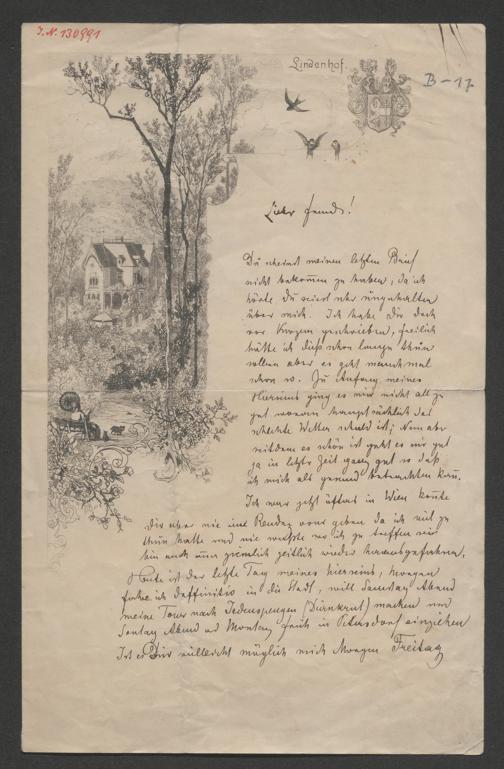 J.N. 130991
Lindenhof.
B-17
Lieber Freund!
Du scheinst meinen letzten Brief
nicht bekommen zu haben, da ich
hörte Du seiest sehr ungehalten
über mich. Ich habe Dir doch
vor Kurzem geschrieben, freilich
hätte ich dieß schon lange thun
sollen aber es geht manchmal
schon so. Zu Anfang meines
Hierseins ging es mir nicht all zu
gut woran hauptsächlich das
schlechte Wetter schuld ist; Nun aber
seitdem es schön ist geht es mir gut
ja in letzter Zeit ganz gut so daß
ich mich als gesund betrachten kann.
Ich war jetzt öfters in Wien konnte
Dir aber nie ein Rendez vous geben da ich viel zu
thun hatte und nie wußte wo ich zu treffen sei
bin auch immer ziemlich zeitlich wieder herausgefahren.
Heute ist der letzte Tag meines Hierseins, Morgen
fahre ich deffinitiv in die Stadt, will Samstag Abend
meine Tour nach Jedenspeugen (Dürnkrut) machen und
Sontag Abend od Montag früh in Petersdorf einziehen
Ist es Dir vielleicht möglich mich Morgen Freitag